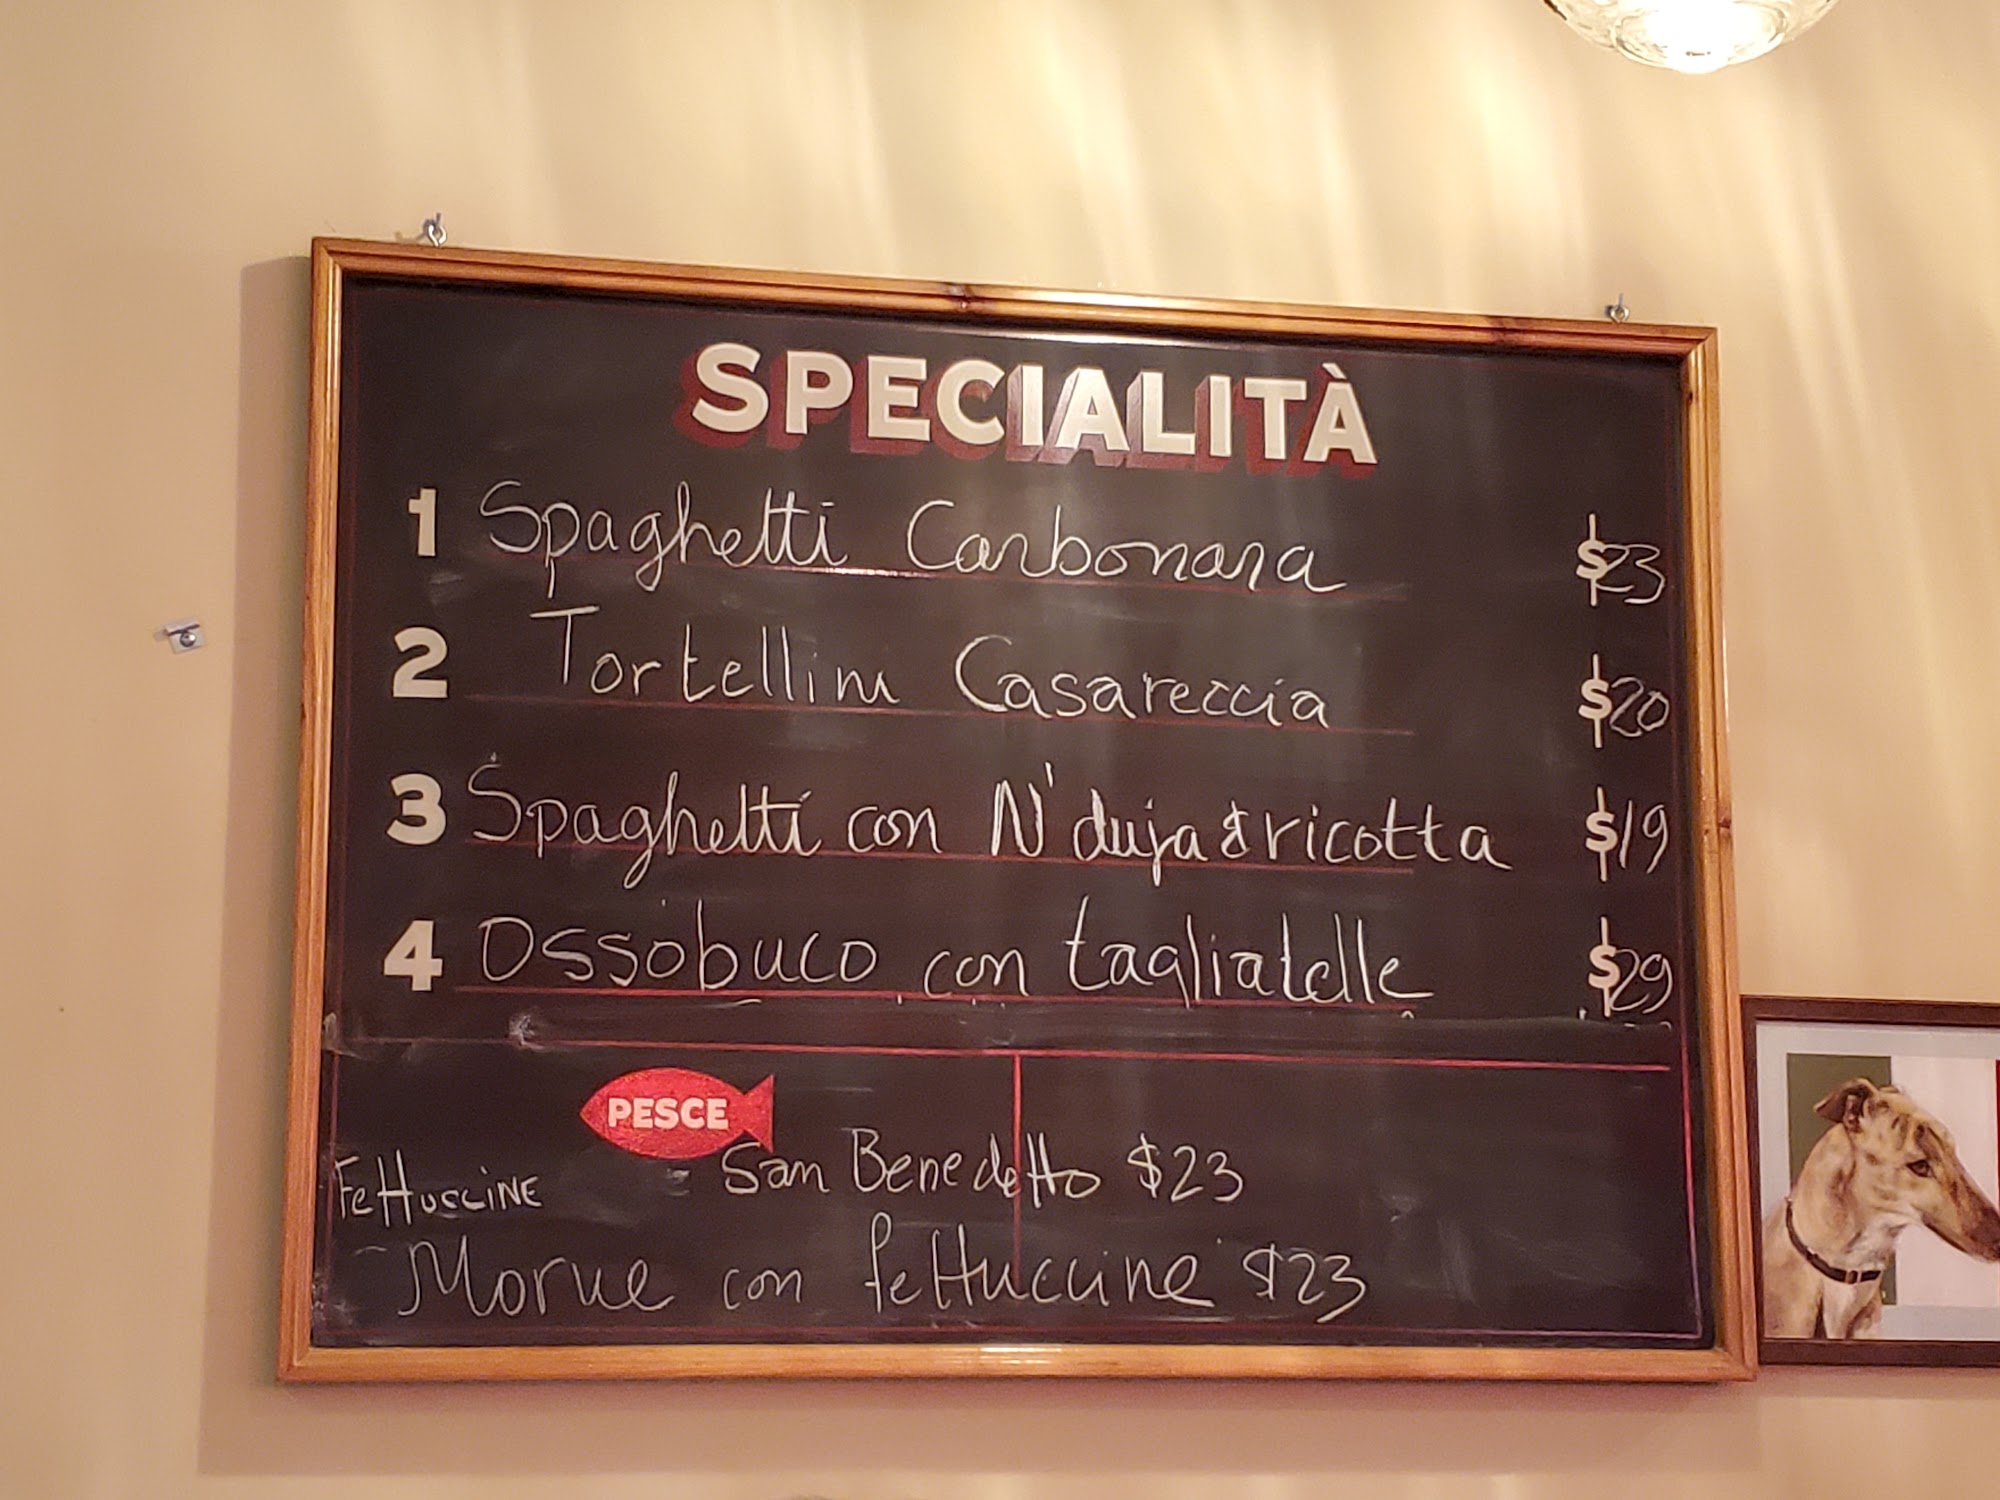 SPECIALITÀ
1 Spaghetti Carbonara $23
2 Tortellini Casareccia $20
3 Spaghetti con N'duja & ricotta $19
4 Ossobuco con tagliatelle $29
PESCE
Fettuccine - San Benedetto $23
- Morue con fettuccine $23